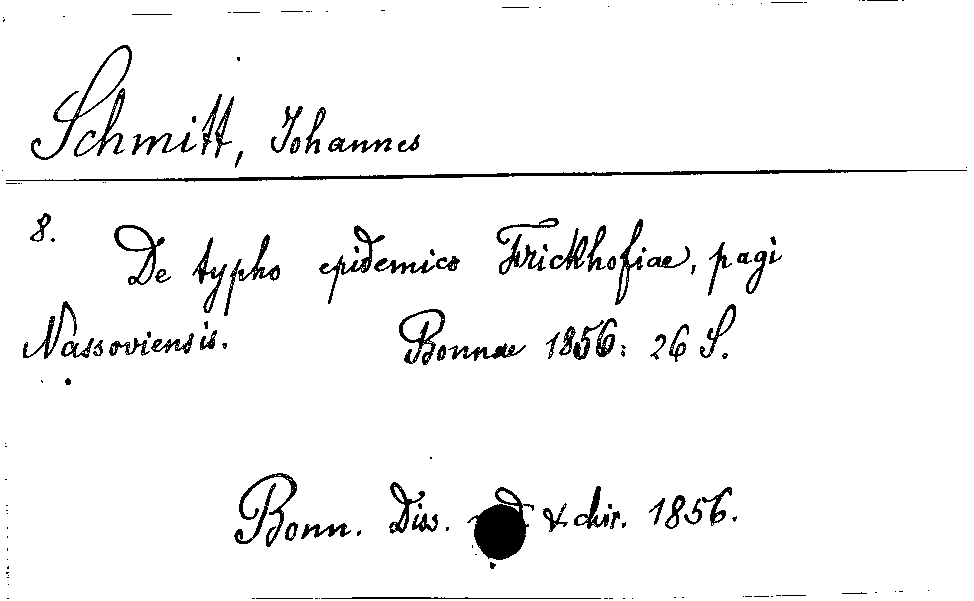 Schmitt, Johannes
8. De typho epidemico Frickhofiae, pagi
Nassoviensis. Bonnae 1856: 26 S.
Bonn. Diss. & chir. 1856.